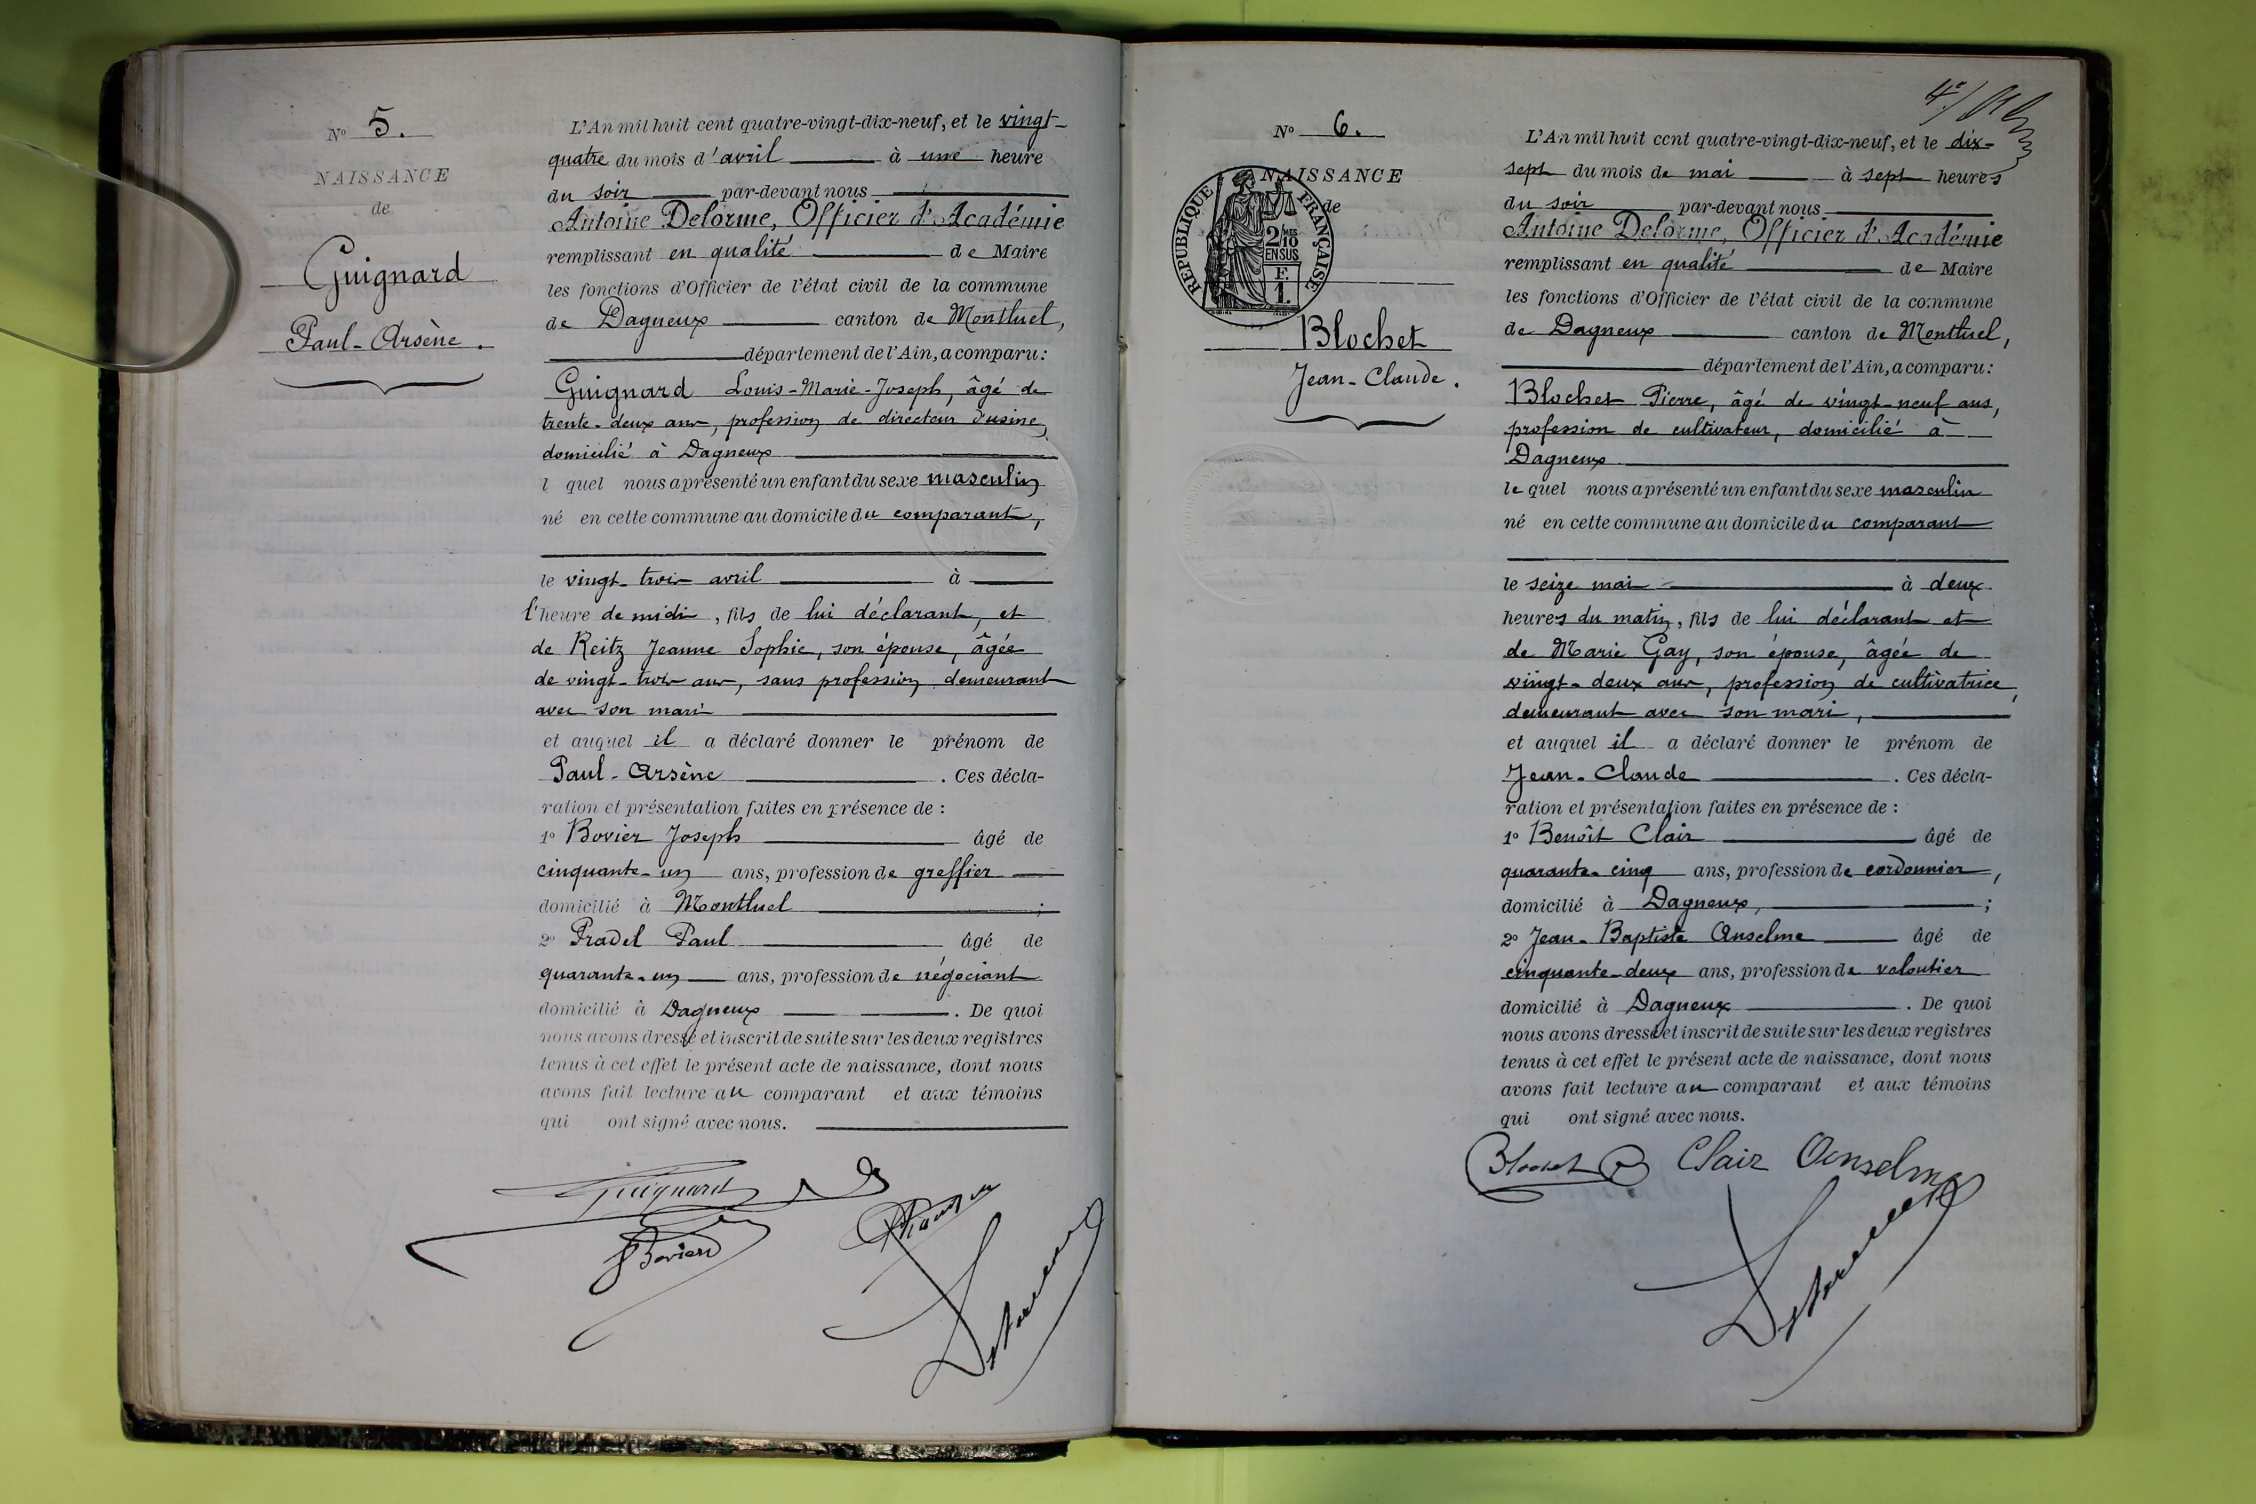 No 5.
NAISSANCE
de
Guignard
Paul-Arsène.
L'An mil huit cent quatre-vingt-dix-neuf, et le vingt-
quatre du mois d'avril à une heure
du soir par-devant nous
Antoine Delorme, Officier d'Académie
remplissant en qualité de Maire
les fonctions d'Officier de l'état civil de la commune
de Dagneux canton de Montluel,
département de l'Ain, a comparu :
Guignard Louis-Marie-Joseph, âgé de
trente-deux ans, profession de directeur d'usine,
domicilié à Dagneux
l quel nous a présenté un enfant du sexe masculin
né en cette commune au domicile du comparant,
le vingt-trois avril à
l'heure de midi, fils de lui déclarant, et
de Reitz Jeanne Sophie, son épouse, âgée
de vingt-trois ans, sans profession demeurant
avec son mari
et auquel il a déclaré donner le prénom de
Paul-Arsène. Ces décla-
ration et présentation faites en présence de :
1o Bovier Joseph âgé de
cinquante-un ans, profession de greffier
domicilié à Montluel ;
2o Pradel Paul âgé de
quarante-un ans, profession de négociant
domicilié à Dagneux. De quoi
nous avons dressé et inscrit de suite sur les deux registres
tenus à cet effet le présent acte de naissance, dont nous
avons fait lecture au comparant et aux témoins
qui ont signé avec nous.
Guignard
Bovier
Delorme
No 6.
NAISSANCE
de
RÉPUBLIQUE FRANÇAISE
2/10
EN SUS
F.
1.
Blochet
Jean-Claude.
L'An mil huit cent quatre-vingt-dix-neuf, et le dix-
sept du mois de mai à sept heures
du soir par-devant nous
Antoine Delorme, Officier d'Académie
remplissant en qualité de Maire
les fonctions d'Officier de l'état civil de la commune
de Dagneux canton de Montluel,
département de l'Ain, a comparu :
Blochet Pierre, âgé de vingt-neuf ans,
profession de cultivateur, domicilié à
Dagneux
le quel nous a présenté un enfant du sexe masculin
né en cette commune au domicile du comparant
le seize mai à deux
heures du matin, fils de lui déclarant et
de Marie Gay, son épouse, âgée de
vingt-deux ans, profession de cultivatrice,
demeurant avec son mari,
et auquel il a déclaré donner le prénom de
Jean-Claude. Ces décla-
ration et présentation faites en présence de :
1o Benoît Clair âgé de
quarante-cinq ans, profession de cordonnier,
domicilié à Dagneux, ;
2o Jean-Baptiste Anselme âgé de
cinquante-deux ans, profession de valoutier
domicilié à Dagneux. De quoi
nous avons dressé et inscrit de suite sur les deux registres
tenus à cet effet le présent acte de naissance, dont nous
avons fait lecture au comparant et aux témoins
qui ont signé avec nous.
Blochet Clair Anselme
Delorme